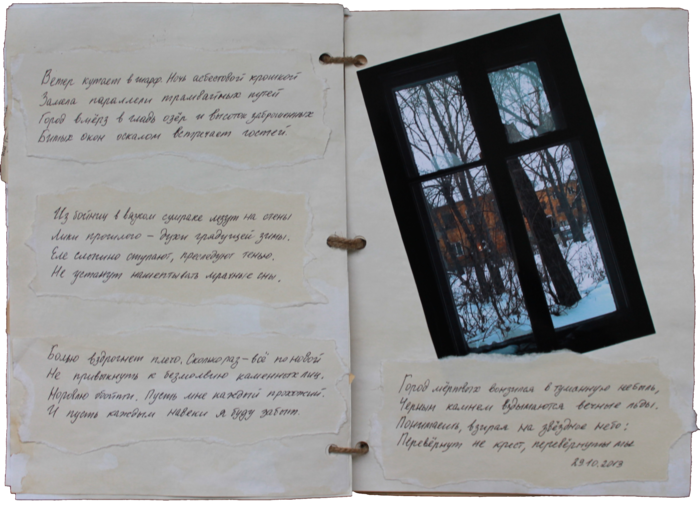 Ветер кутает в шарф. Ночь асбестовой крошкой
Залила параллели трамвайных путей
Город вмёрз в гладь озёр и высоты заброшенных
Битых окон оскалом встречает гостей
Из бойниц в вязком сумраке лезут на стены
Лики прошлого – духи грядущей зимы.
Еле слышно ступают, преследуют тенью.
Не устанут нашептывать мрачные сны.
Болью вздрогнет плечо. Сколько раз – всё по новой
Не привыкнуть к безмолвию каменных лиц.
Норовлю обойти. Пусть мне каждый прохожий.
И пусть каждым навеки я буду забыт
Город мёртвых вонзился в туманную небыль,
Черным камнем вздымаются вечные льды.
Понимаешь, взирая на звёздное небо:
Перевёрнут не крест, перевёрнуты мы
29.10.2013